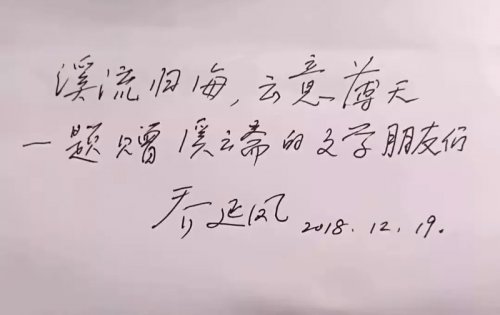 溪流归海,云意薄天
一题赠溪云斋的文学朋友们
乔延风 2018.12.19.